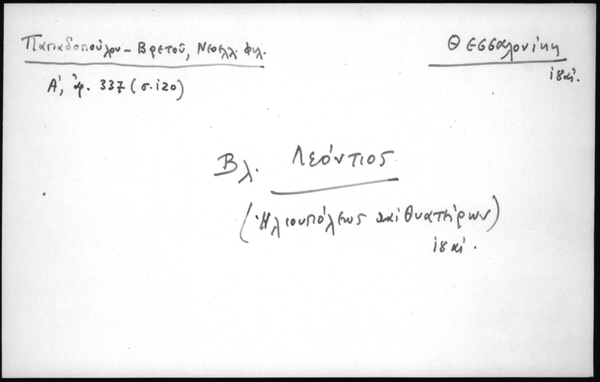 Παπαδοπούλου - Βρετοῦ, Νεοελλ. Φιλ.
Α΄, ἀρ. 337 (σ. 120)
Θεσσαλονίκη
ιθ αἰ.
Βλ. Λεόντιος
(Ἡλιουπόλεως καὶ Θυατείρων)
ιθ αἰ.